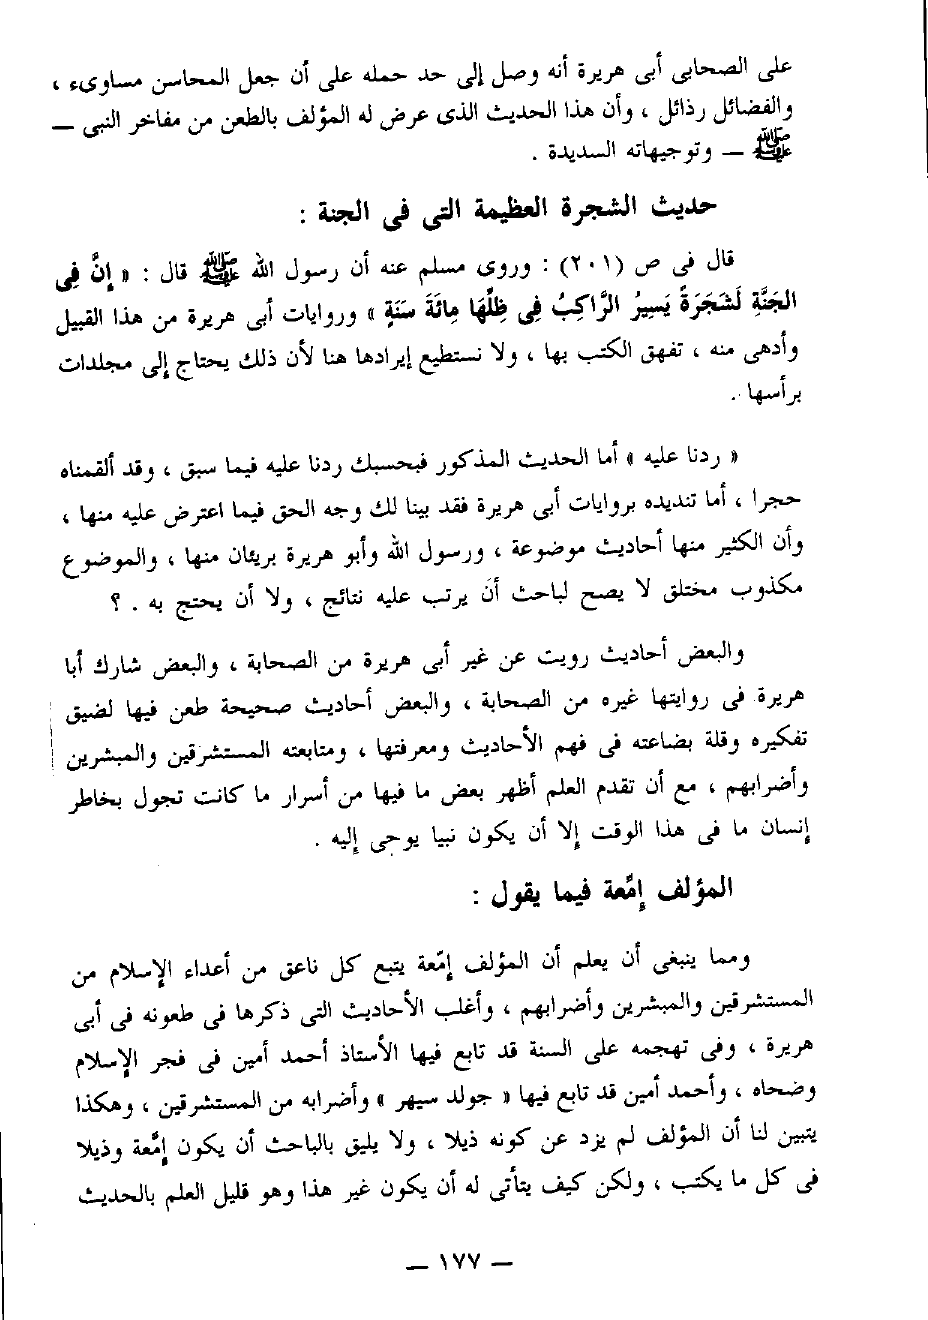 على الصحابى أبى هريرة أنه وصل إلى حد حمله على أن جعل المحاسن مساوىء ،
والفضائل رذائل ، وأن هذا الحديث الذى عرض له المؤلف بالطعن من مفاخر النبى —
ﷺ — وتوجيهاته السديدة .
حديث الشجرة العظيمة التى فى الجنة :
قال فى ص (٢٠١) : وروى مسلم عنه أن رسول الله ﷺ قال : « إِنَّ فِى
الجَنَّةِ لَشَجَرَةً يَسِيرُ الرَّاكِبُ فِى ظِلِّهَا مِائَةَ سَنَةٍ » وروايات أبى هريرة من هذا القبيل
وأدهى منه ، تفهق الكتب بها ، ولا نستطيع إيرادها هنا لأن ذلك يحتاج إلى مجلدات
برأسها .
« ردنا عليه » أما الحديث المذكور فبحسبك ردنا عليه فيما سبق ، وقد ألقمناه
حجرا ، أما تنديده بروايات أبى هريرة فقد بينا لك وجه الحق فيما اعترض عليه منها ،
وأن الكثير منها أحاديث موضوعة ، ورسول الله وأبو هريرة بريئان منها ، والموضوع
مكذوب مختلق لا يصح لباحث أن يرتب عليه نتائج ، ولا أن يحتج به . ؟
والبعض أحاديث رويت عن غير أبى هريرة من الصحابة ، والبعض شارك أبا
هريرة فى روايتها غيره من الصحابة ، والبعض أحاديث صحيحة طعن فيها لضيق
تفكيره وقلة بضاعته فى فهم الأحاديث ومعرفتها ، ومتابعته المستشرقين والمبشرين
وأضرابهم ، مع أن تقدم العلم أظهر بعض ما فيها من أسرار ما كانت تجول بخاطر
إنسان ما فى هذا الوقت إلا أن يكون نبيا يوحى إليه .
المؤلف إمَّعة فيما يقول :
ومما ينبغى أن يعلم أن المؤلف إمّعة يتبع كل ناعق من أعداء الإسلام من
المستشرقين والمبشرين وأضرابهم ، وأغلب الأحاديث التى ذكرها فى طعونه فى أبى
هريرة ، وفى تهجمه على السنة قد تابع فيها الأستاذ أحمد أمين فى فجر الإسلام
وضحاه ، وأحمد أمين قد تابع فيها « جولد سيهر » وأضرابه من المستشرقين ، وهكذا
يتبين لنا أن المؤلف لم يزد عن كونه ذيلا ، ولا يليق بالباحث أن يكون إمَّعة وذيلا
فى كل ما يكتب ، ولكن كيف يتأتى له أن يكون غير هذا وهو قليل العلم بالحديث
— ١٧٧ —